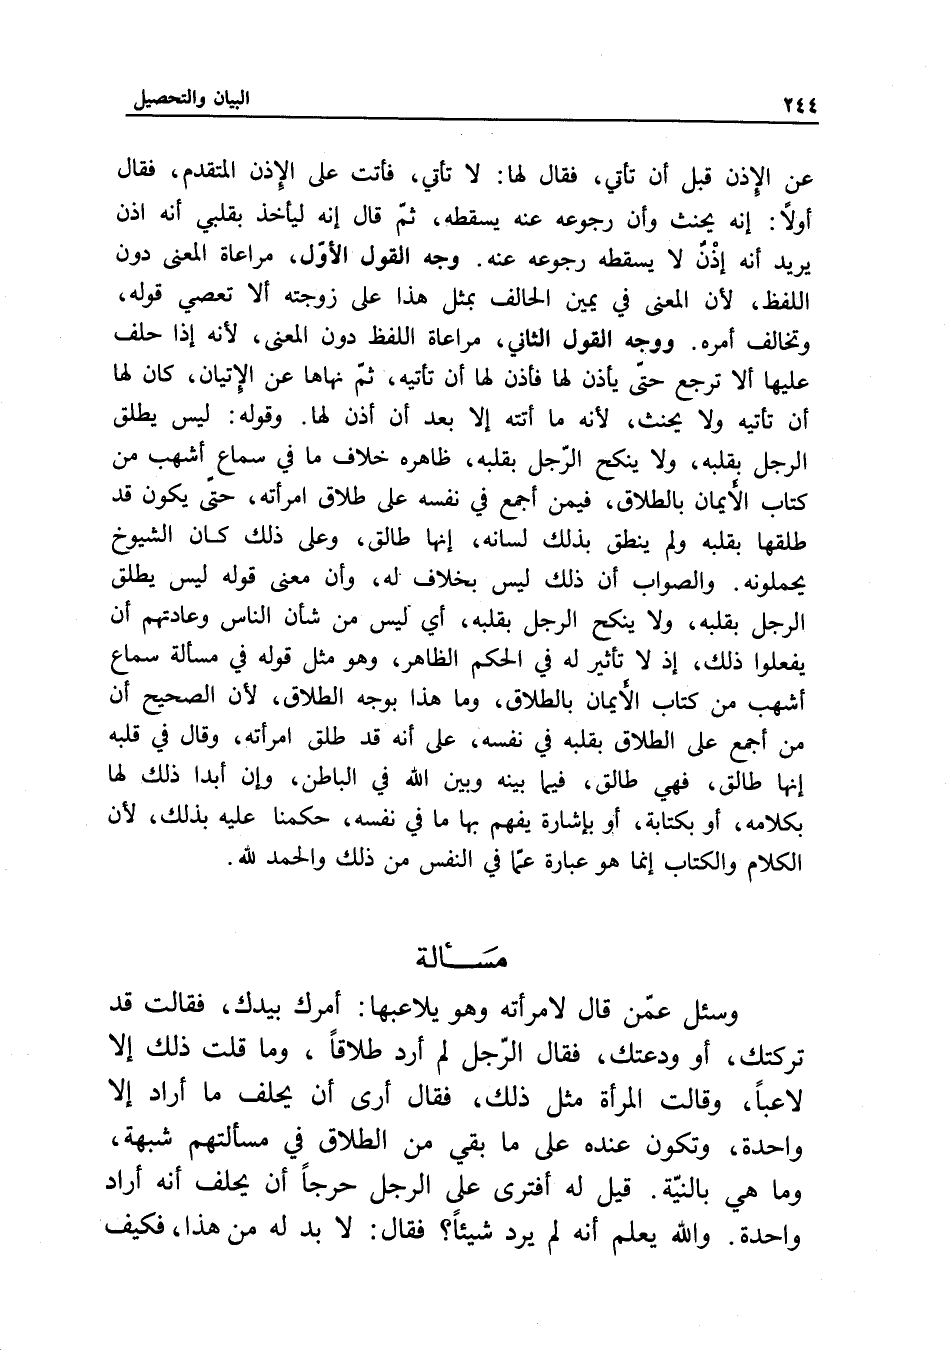 ٢٤٤ البيان والتحصيل
عن الإِذن قبل أن تأتي، فقال لها: لا تأتي، فأتت على الإِذن المتقدم، فقال
أولاً: إنه يحنث وأن رجوعه عنه يسقطه، ثمّ قال إنه ليأخذ بقلبي أنه اذن
يريد أنه إذْنٌ لا يسقطه رجوعه عنه. وجه القول الأوّل، مراعاة المعنى دون
اللفظ، لأن المعنى في يمين الحالف بمثل هذا على زوجته ألا تعصي قوله،
وتخالف أمره. ووجه القول الثاني، مراعاة اللفظ دون المعنى، لأنه إذا حلف
عليها ألا ترجع حتّى يأذن لها فأذن لها أن تأتيه، ثمّ نهاها عن الإِتيان، كان لها
أن تأتيه ولا يحنث، لأنه ما أتته إلا بعد أن أذن لها. وقوله: ليس يطلق
الرجل بقلبه، ولا ينكح الرّجل بقلبه، ظاهره خلاف ما في سماع أشهب من
كتاب الأَيمان بالطلاق، فيمن أجمع في نفسه على طلاق امرأته، حتّى يكون قد
طلقها بقلبه ولم ينطق بذلك لسانه، إنها طالق، وعلى ذلك كان الشيوخ
يحملونه. والصواب أن ذلك ليس بخلاف له، وأن معنى قوله ليس يطلق
الرجل بقلبه، ولا ينكح الرجل بقلبه، أي ليس من شأن الناس وعادتهم أن
يفعلوا ذلك، إذ لا تأثير له في الحكم الظاهر، وهو مثل قوله في مسألة سماع
أشهب من كتاب الأَيمان بالطلاق، وما هذا بوجه الطلاق، لأن الصحيح أن
من أجمع على الطلاق بقلبه في نفسه، على أنه قد طلق امرأته، وقال في قلبه
إنها طالق، فهي طالق، فيما بينه وبين الله في الباطن، وإن أبدا ذلك لها
بكلامه، أو بكتابة، أو بإشارة يفهم بها ما في نفسه، حكمنا عليه بذلك، لأن
الكلام والكتاب إنما هو عبارة عمّا في النفس من ذلك والحمد لله.
مسألة
وسئل عمّن قال لامرأته وهو يلاعبها: أمرك بيدك، فقالت قد
تركتك، أو ودعتك، فقال الرّجل لم أرد طلاقاً، وما قلت ذلك إلا
لاعباً، وقالت المرأة مثل ذلك، فقال أرى أن يحلف ما أراد إلا
واحدة، وتكون عنده على ما بقي من الطلاق في مسألتهم شبهة،
وما هي بالنيّة. قيل له أفترى على الرجل حرجاً أن يحلف أنه أراد
واحدة. والله يعلم أنه لم يرد شيئاً؟ فقال: لا بد له من هذا، فكيف